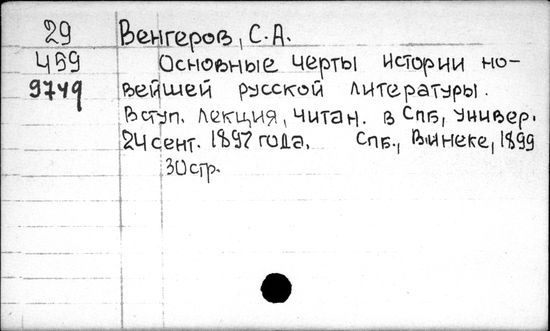 29 Венгеров, С.А.
459 Основные черты истории но-
9749 вейшей русской литературы.
Вступ. лекция, читан. в Спб, универ.
24 сент. 1897 года. Спб., Винеке, 1899
30 стр.